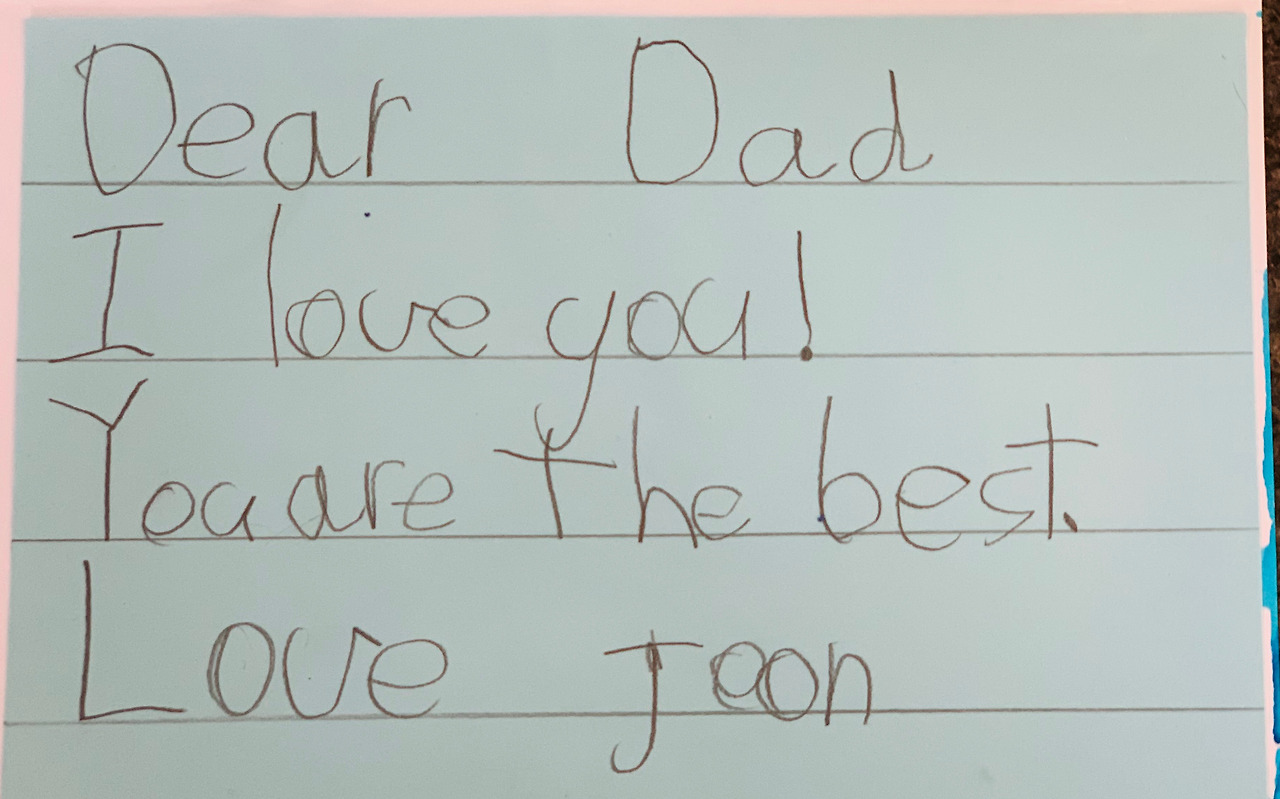 Dear Dad
I love you!
You are the best.
Love Jeon